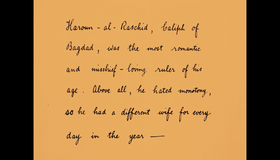 Haroun-al-Raschid, Caliph of
Bagdad, was the most romantic
and mischief-loving ruler of his
age. Above all, he hated monotony,
so he had a different wife for every
day in the year —